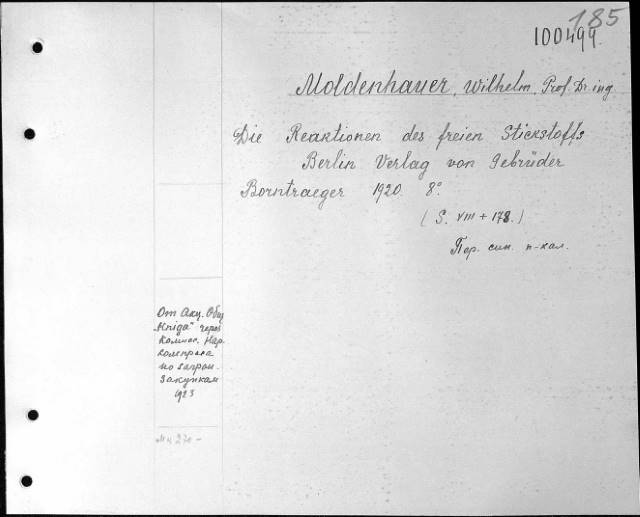 185
100499
Moldenhauer, Wilhelm, Prof. Dr ing
Die Reaktionen des freien Stickstoffs
Berlin Verlag von Gebrüder
Borntraeger 1920. 8°.
(S. VIII + 178.)
Пер. син. п-кал.
От Акц. Общ
"Kniga" через
Комис. Нар.
Компроса
по загран.
Закупкам
1923
Мк 270 -